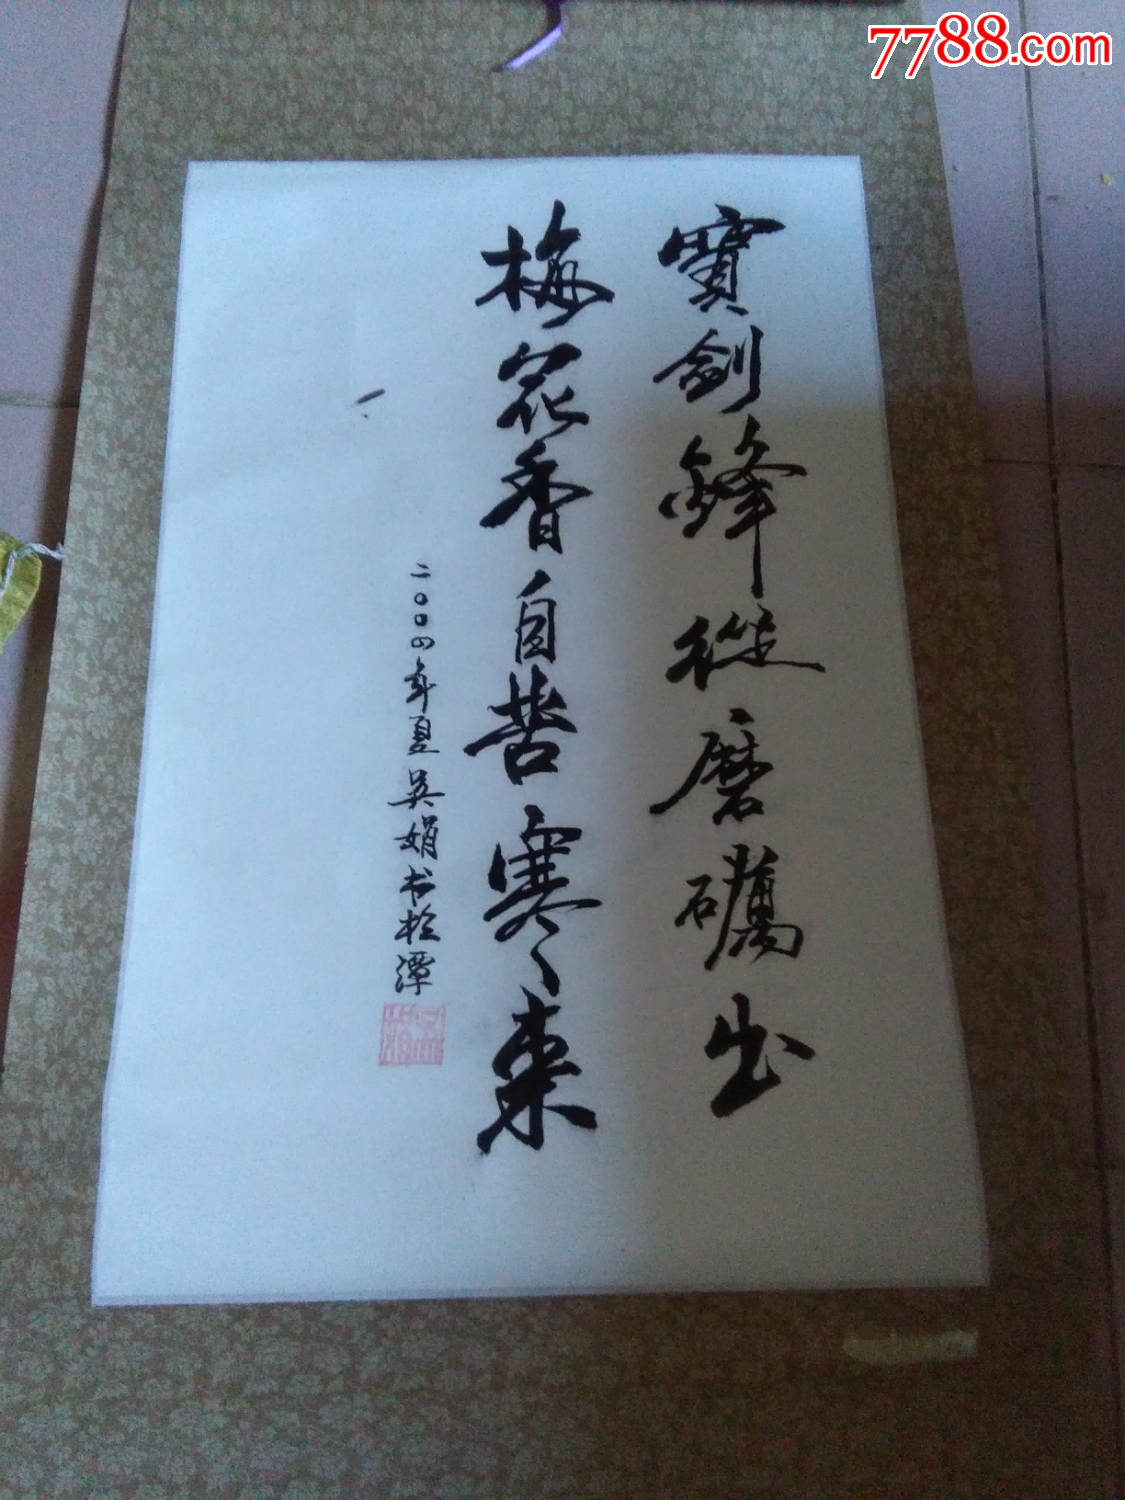 7788.com
寶劍鋒從磨礪出
梅花香自苦寒來
二〇〇四年夏吴娟书於潭